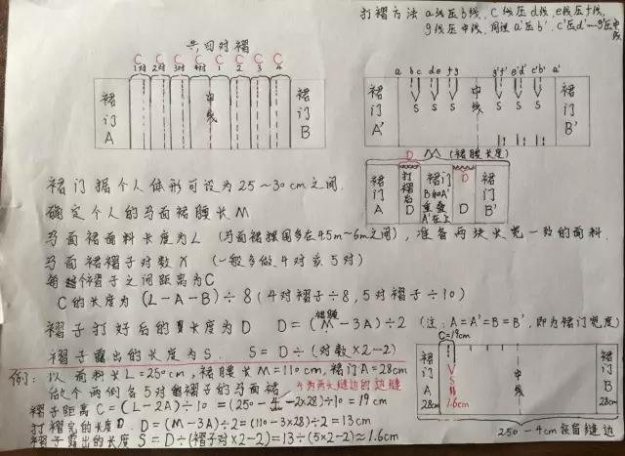 打褶方法 a线压b线, c线压d线, e线压f线,
g线压中线, 同理 a'压b' c'压d'…g'压中线
共四对褶
C C C C C C C C
1对 2对 3对 4对 1 2 3 4
裙门 A 中线 裙门 B
a b c d e f g g' f' e' d' c' b' a'
裙门 A' S S S 中线 S S S 裙门 B'
D M (裙腰长度)
裙门 A 打褶后 D 裙门 B和A' 重叠 A'在上 D D 裙门 B'
裙门据个人体形可设为25~30cm之间.
确定个人的马面裙腰长M
马面裙面料长度为L (马面裙摆围多在4.5m~6m之间), 准备两块长宽一致的面料.
马面裙褶子对数X (一般多做4对或5对)
每褶子之间距离为C
C的长度为 (L-A-B)÷8 (4对褶子÷8, 5对褶子÷10)
褶子打好后的长度为D D=(M-3A)÷2 (注: A=A'=B=B', 即为裙门宽度)
裙腰
褶子露出的长度为S. S=D÷(对数×2-2)
例: 以面料长L=250cm, 裙腰长M=110cm, 裙门A=28cm
做个两侧各5对褶子的马面裙
4为两头缝边的边缝
褶子距离C=(L-2A)÷10=(250-4-2×28)÷10=19cm
打褶完的长度D. D=(M-3A)÷2=(110-3×28)÷2=13cm
褶子露出的长度 S=D÷(褶子对×2-2)=13÷(5×2-2)≈1.6cm
C=19cm
裙门 A 28cm S 1.6cm 中线 裙门 B 28cm
250-4cm预留缝边